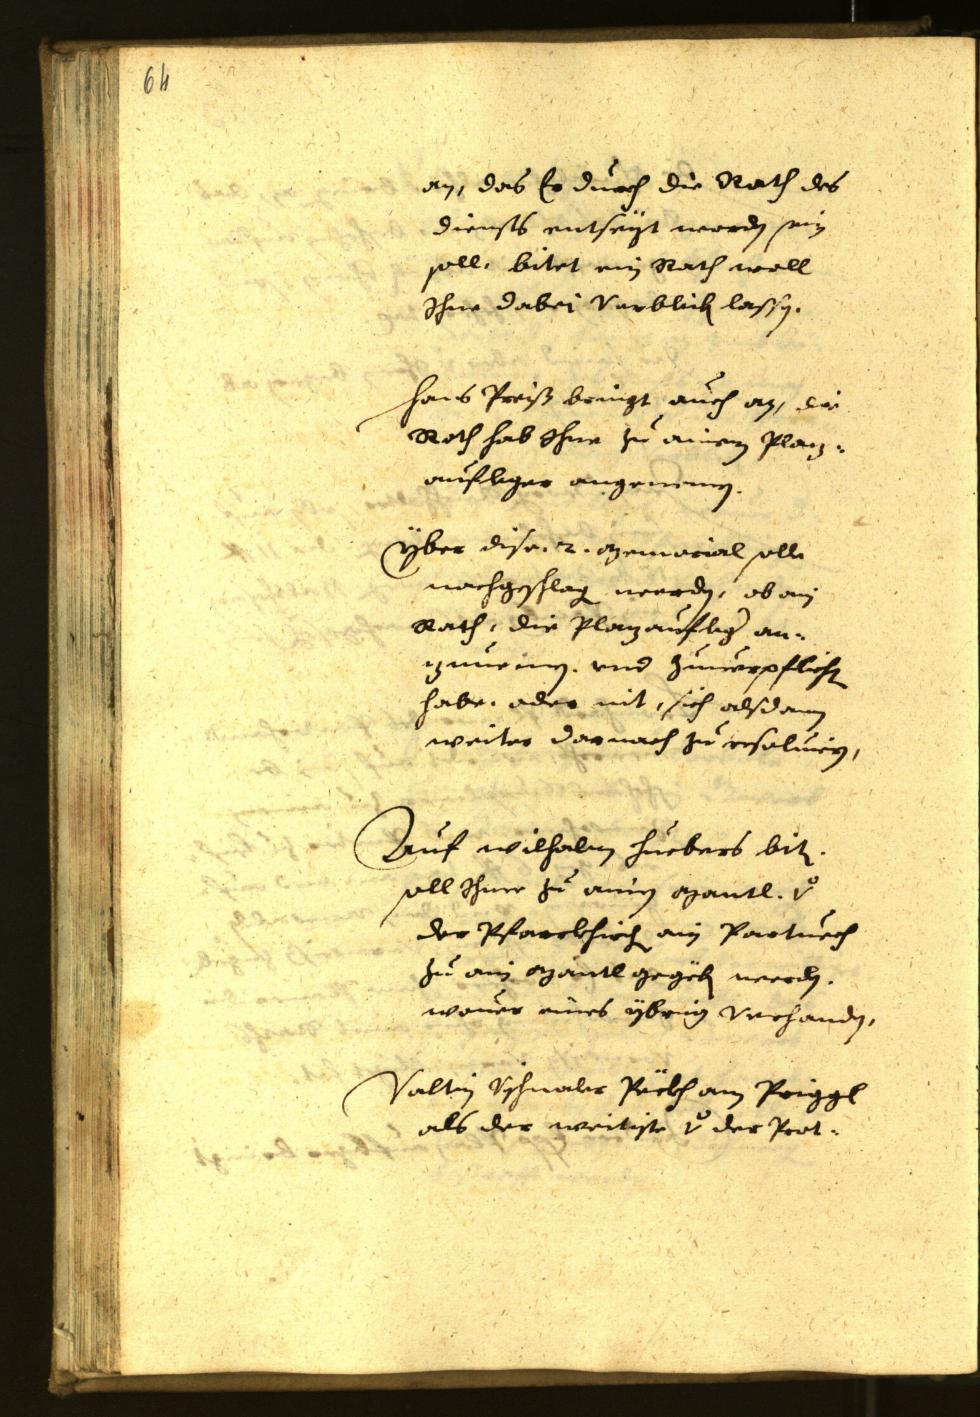 64
an, das Er durch die Rath des
diensts entsezt worden sein
soll, bitet ein Rath woll
Ihne dabei Verbleiben lassen.
Hans Preiß bringt auch an, die
Rath hab Ihne zu ainem Plaz-
aufleger angenomen.
Über dise .2. memorial solle
nachgeschlagen werden, ob ain
Rath, die Plazaufleger an-
zunemen. vnd zuuerpflicht
habe. oder nit, sich alsdann
weiter darnach zu resoluiern,
Auf Wilhalm Huebers bit.
soll Ihme zu ainem Mantl. v
der Pfarrkhirchen ain Partuech
zu ain Mantl gegeben werden.
wouer eines ybrig Verhanden,
Valtin Peckh am Priggl
als der weitiste v der Prot-